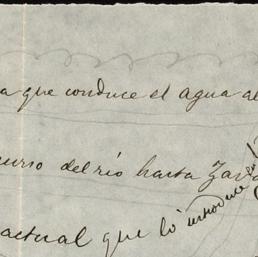 a que conduce el agua al
curso del río hasta Zar
actual que lo introduce